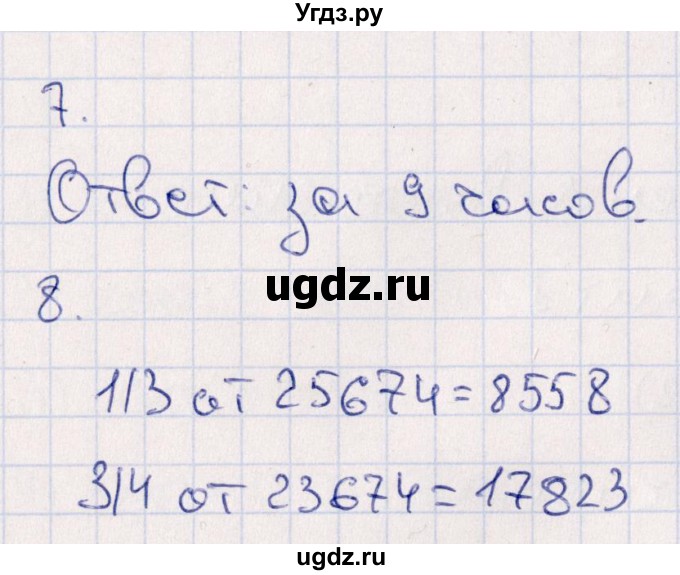 Угдз.ру
7.
Ответ: за 9 часов.
ugdz.ru
8.
1/3 от 25674 = 8558
3/4 от 23674 = 17823
ugdz.ru